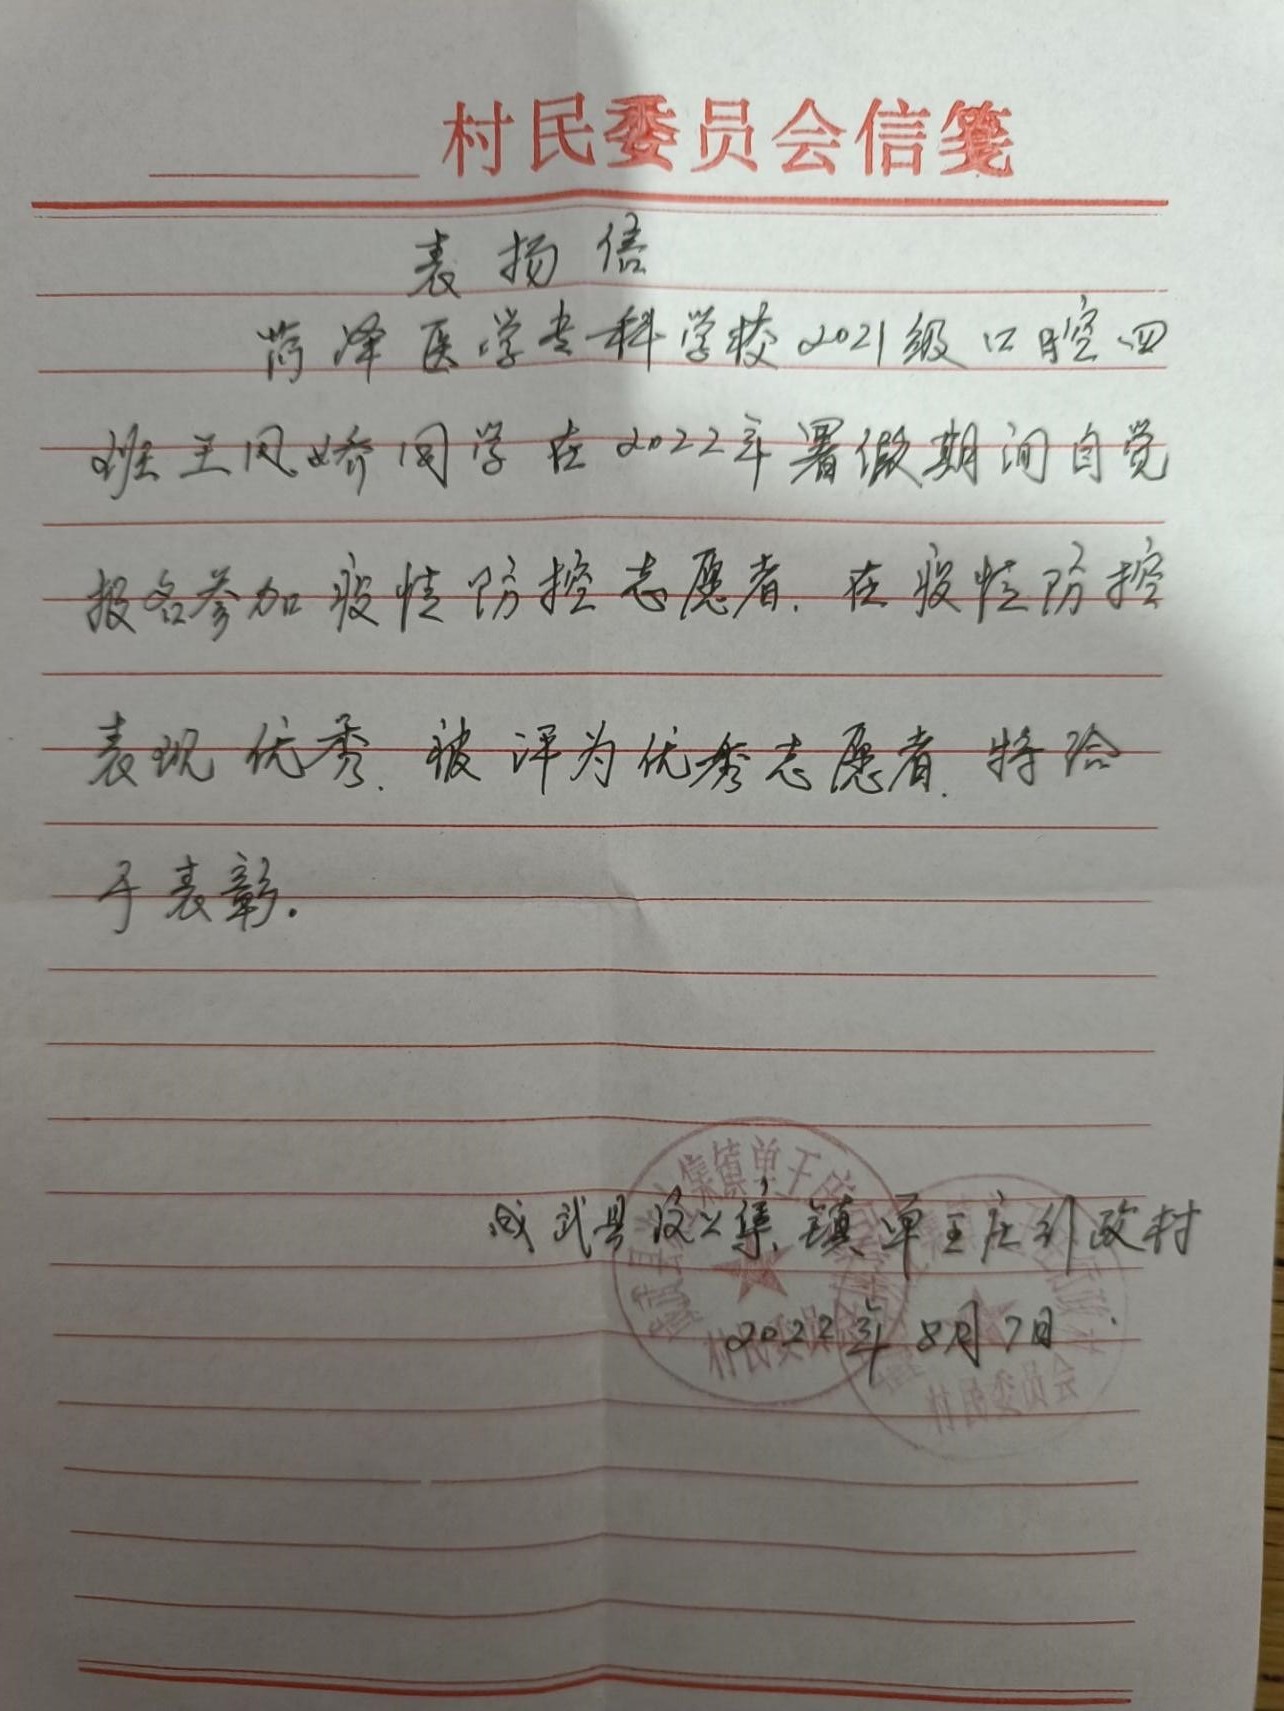 村民委员会信笺
表扬信
菏泽医学专科学校2021级口腔四
班王凤娇同学在2022年署假期间自觉
报名参加疫情防控志愿者.在疫情防控
表现优秀.被评为优秀志愿者.特给
于表彰.
成武县汶上集镇单王庄行政村
2022年8月7日
村民委员会